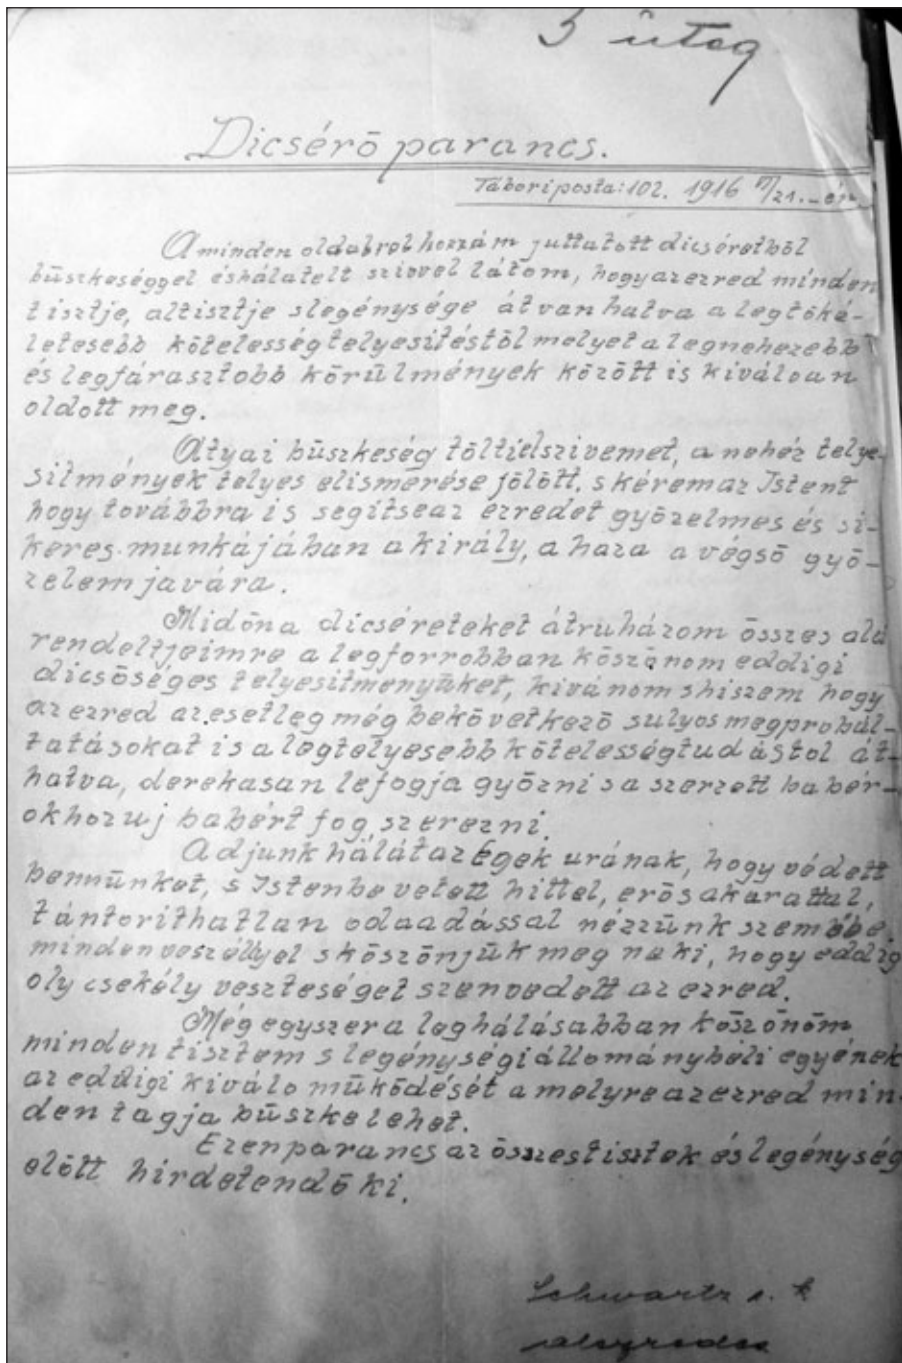 3 üteg
Dicsérō parancs.
Tábori posta: 102. 1916 VI/21.-én
A minden oldalról hozzám juttatott dicséretből
būszkeséggel és hálatelt szivvel látom, hogy az ezred minden
tisztje, altisztje s legénysége át van hatva a legtöké-
letesebb kötelességtelyesitéstől melyet a legnehezebb
és legfárasztobb kōrūlmények kōzōtt is kiváloan
oldott meg.
Atyai būszkeség tölti el szivemet, a nehéz telye-
sitmények telyes elismerése fölött, s kérem az Istent
hogy továbbra is segitse az ezredet gyōzelmes és si-
keres munkájában a király, a haza a végsō gyō-
zelem javára.
Midōn a dicséreteket átruházom ōsszes alá
rendeltjeimre a legforrobban kōszōnom eddigi
dicsōséges telyesitmenyūket, kivánom s hiszem hogy
az ezred az esetleg még bekōvetkezō sulyos megprobál-
tatásokat is a legtelyesebb kōtelességtudástol át-
hatva, derekasan le fogja gyōzni s a szerzett babér-
okhoz uj babért fog szerezni.
Adjunk hálát az Égek urának, hogy védett
bennūnket, s Istenbe vetett hittel, erōs akarattal,
tántorithatlan odaadással nézzūnk szembe
minden veszéllyel s kōszōnjūk meg neki, hogy eddig
oly csekély veszteséget szenvedett az ezred.
Még egyszer a leghálásabban kōszōnōm
minden tisztem s legénységi állománybéli egyének
az eddigi kiválo mūkōdését a melyre az ezred min-
den tagja būszke lehet.
Ezen parancs az ōsszes tisztek és legénység
elōtt hirdetendō ki.
Schwartz s. k
alezredes